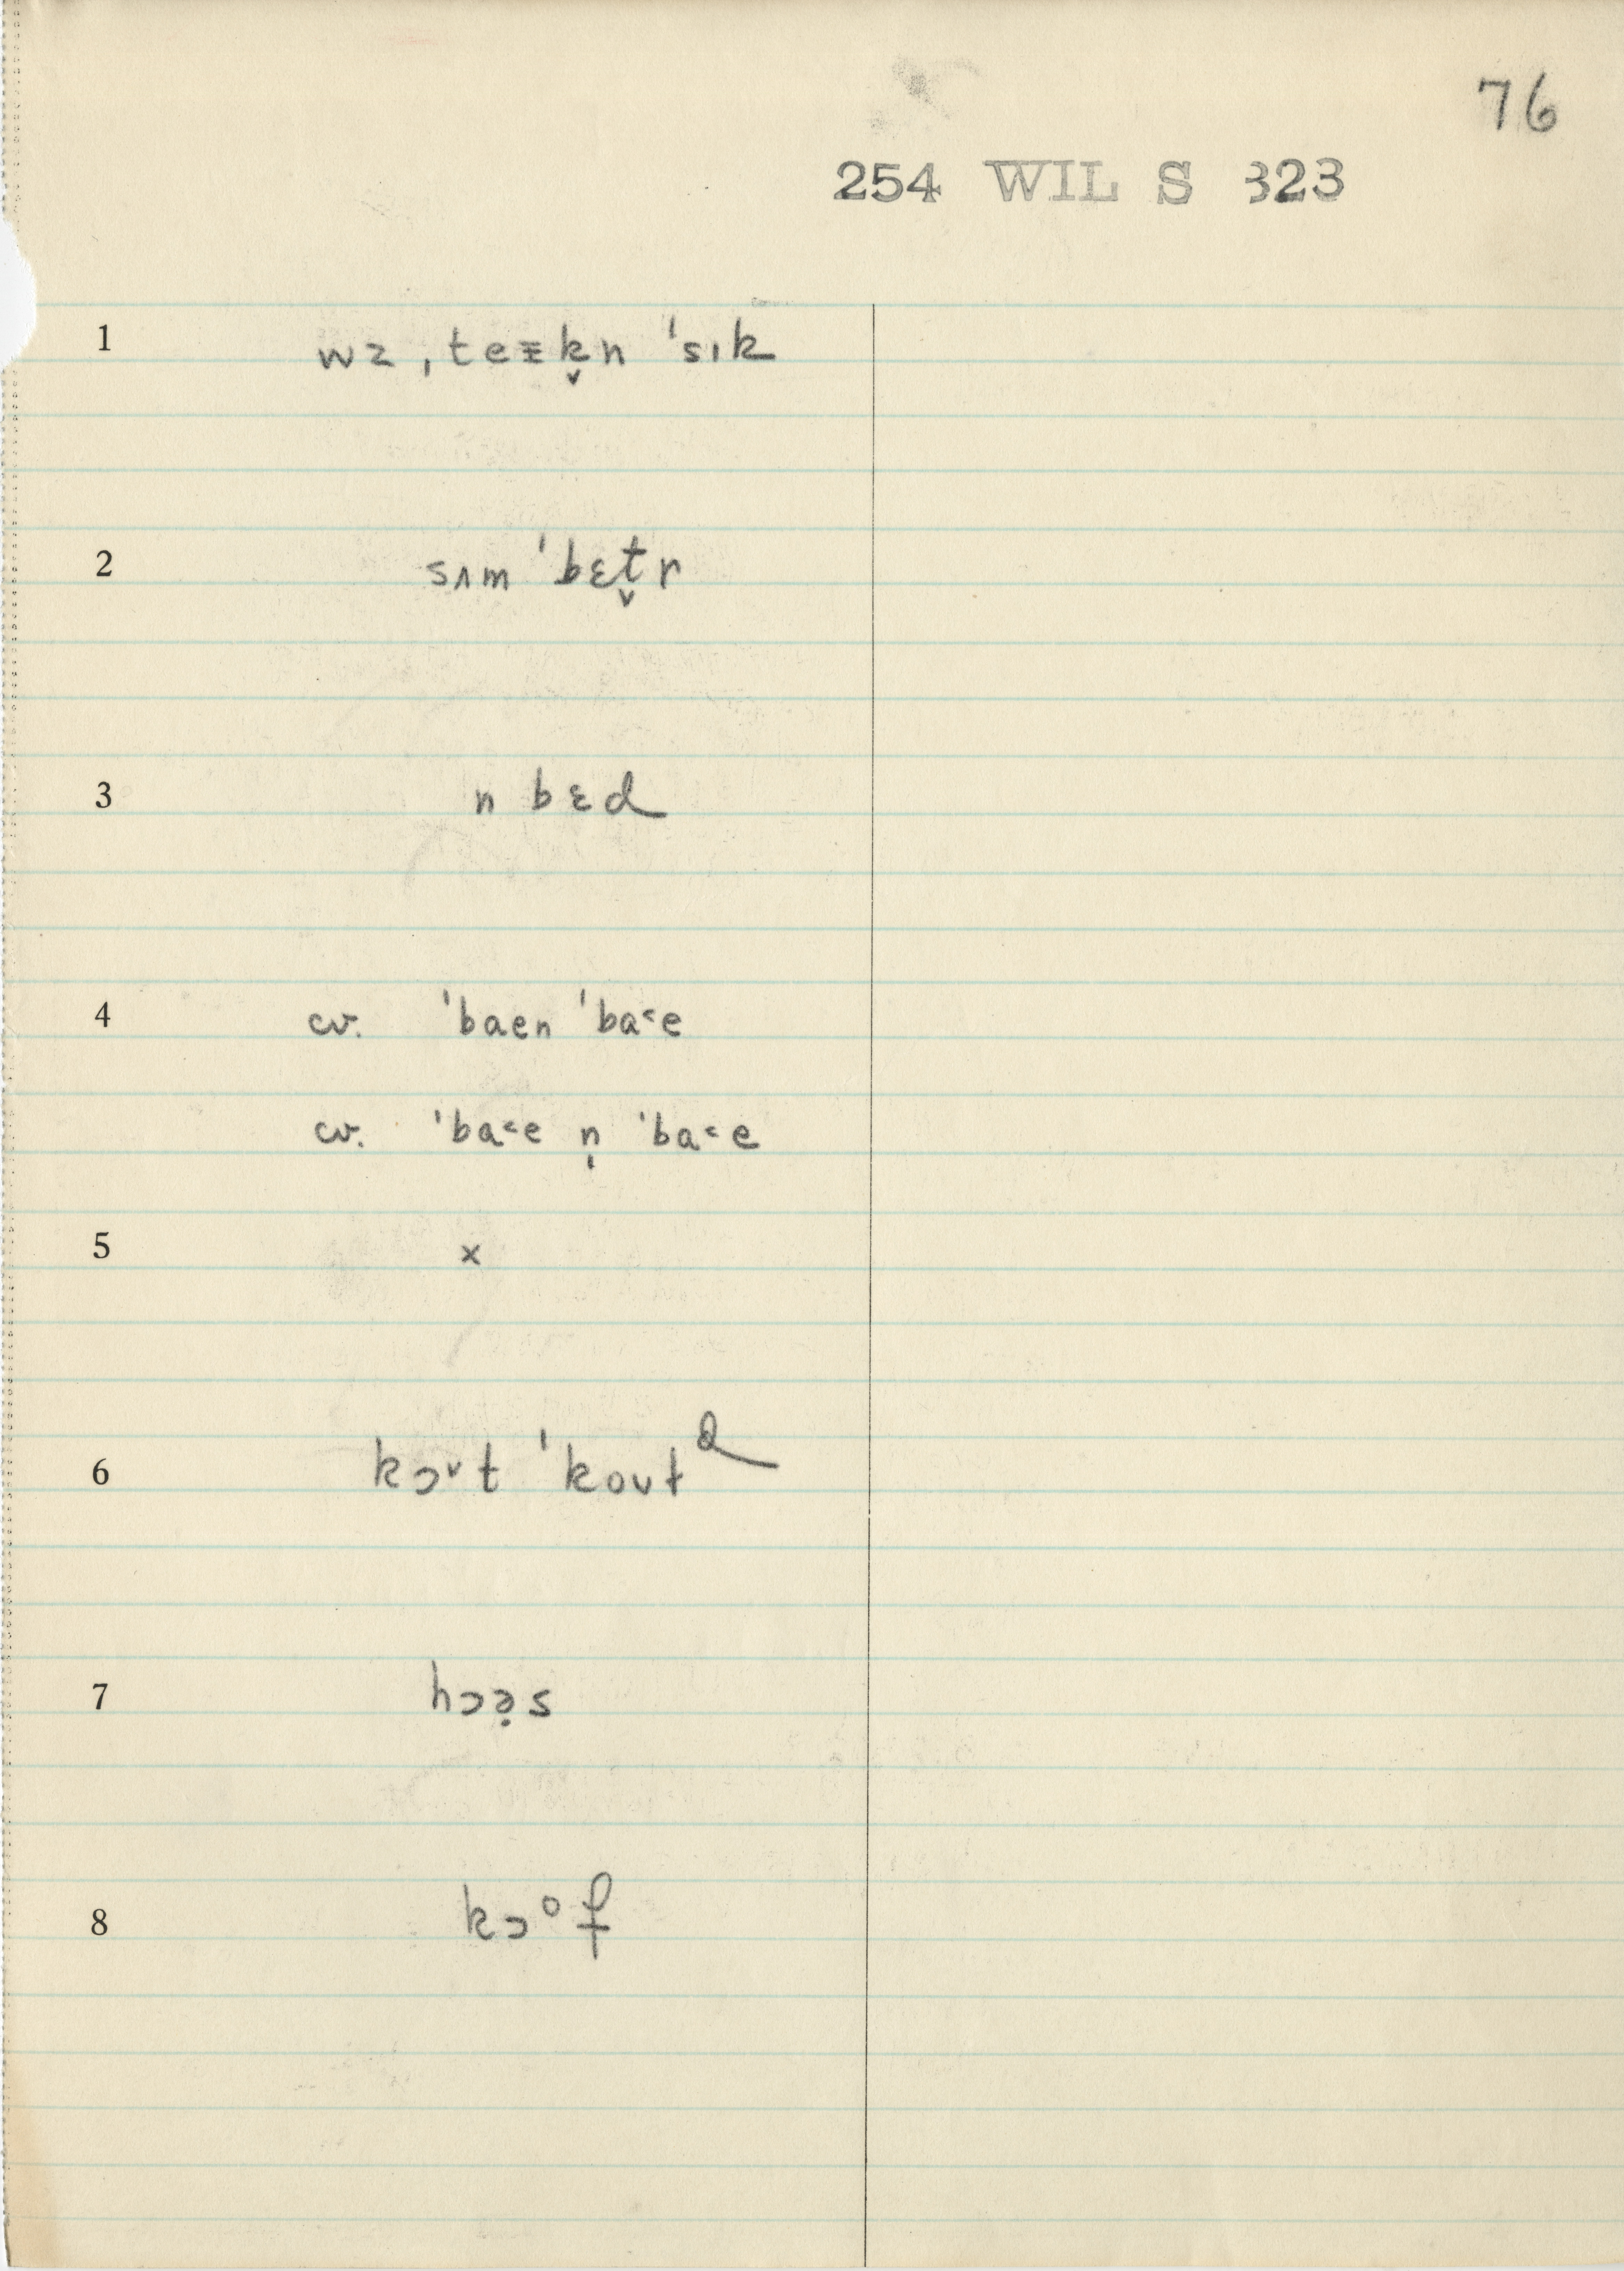 76
254 WIL S 323
1 wz ˌteɪ̵k̬n ˈsɪk
2 sʌm ˈbɛt̬r
3 n bɛd
4 cv. ˈbaen ˈba˂e
cv. ˈba˂e n̩ ˈba˂e
5 x
6 kɔ˅t ˈkoʊt
7 hɔə̣s
8 kɔᵒf